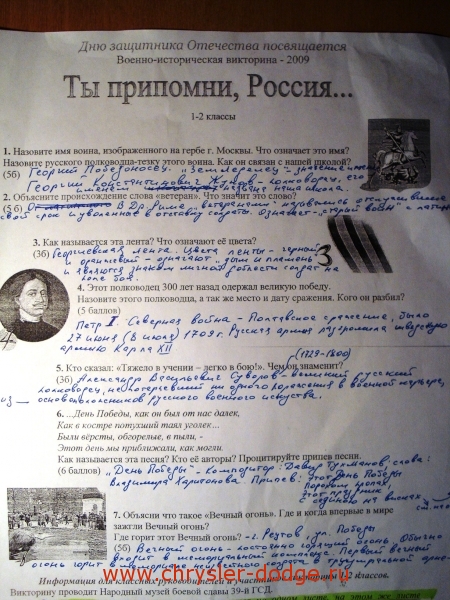 Дню защитника Отечества посвящается
Военно-историческая викторина - 2009
Ты припомни, Россия...
1-2 классы
1. Назовите имя воина, изображенного на гербе г. Москвы. Что означает это имя?
Назовите русского полководца-тезку этого воина. Как он связан с нашей школой?
(5б) Георгий Победоносец. "Земледелец" - значение имени
Георгий Константинович Жуков - полководец, его
именем названа наша школа.
2. Объясните происхождение слова «ветеран». Что значит это слово?
(5 б) В Др. Риме "ветеранами" назывались отслужившие
свой срок и уволенные в отставку солдаты. Означает - "старый воин" с латыни
3. Как называется эта лента? Что означают её цвета?
(3б) Георгиевская лента. Цвета ленты - черный
и оранжевый - означают "дым и пламень"
и является знаком личной доблести солдат на
поле боя.
3
4. Этот полководец 300 лет назад одержал великую победу.
Назовите этого полководца, а так же место и дату сражения. Кого он разбил?
(5 баллов)
4
Петр I. Северная война - Полтавское сражение, было
27 июня (8 июля) 1709 г. Русская армия разгромила шведскую
армию Карла XII
5. Кто сказал: «Тяжело в учении – легко в бою!». Чем он знаменит?
(1729-1800)
(3б) Александр Васильевич Суворов - великий русский
полководец, не потерпевший ни одного поражения в военной карьере,
из основоположников русского военного искусства.
6. ...День Победы, как он был от нас далек,
Как в костре потухший таял уголек...
Были вёрсты, обгорелые, в пыли, -
Этот день мы приближали, как могли.
Как называется эта песня? Кто её авторы? Процитируйте припев песни.
(6 баллов) "День Победы" - композитор: Давид Тухманов; слова:
Владимира Харитонова Припев: Этот День Победы
Порохом пропах,
Это праздник
с сединою на висках
7. Объясни что такое «Вечный огонь». Где и когда впервые в мире
зажгли Вечный огонь?
Где горит этот Вечный огонь? - г. Реутов ул. Победы
(5б) Вечный огонь - постоянно горящий огонь. Обычно
входит в мемориальный комплекс. Первый вечный
огонь горит в мемориале неизвестного солдата в триумфальной арке
www.chrysler-dodge.ru
Информация для классных руководителей и участников викторины 1-2 классов.
Викторину проводит Народный музей боевой славы 39-й ГСД.